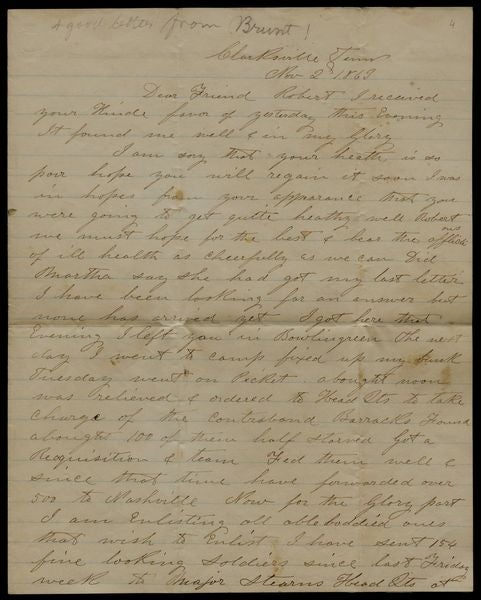 A good letter from Brunt!
4
Clarksville Tenn
Nov 2d 1863
Dear Friend Robert I received
your Kinde favor of yesterday this Evening
It found me well & in my Glory
I am sory that your heath is so
poor hope you will regain it soon I was
in hopes from your appearance that you
were going to get quite heathy well Robert
we must hope for the best & bear the
of ill health as cheerfully as we can Did
Martha say she had got my last letter
I have been looking for an answer but
none has arrived yet I got here that
Evening I left you in Bowlingreen The next
day I went to camp fixed up my bunk
Tuesday went on Picket abought noon
was Relieved & ordered to Head Qts to take
charge of the contraband Barracks Found
abought 100 of them half starved Got a
Requisition & team Fed them well &
since that time have forwarded over
500 to Nashville Now for the Glory part
I am Enlisting all ablebodded ones
that wish to Enlist I have sent 154
fine looking Soldiers since last Friday
week to Major Stearns Head Qts at